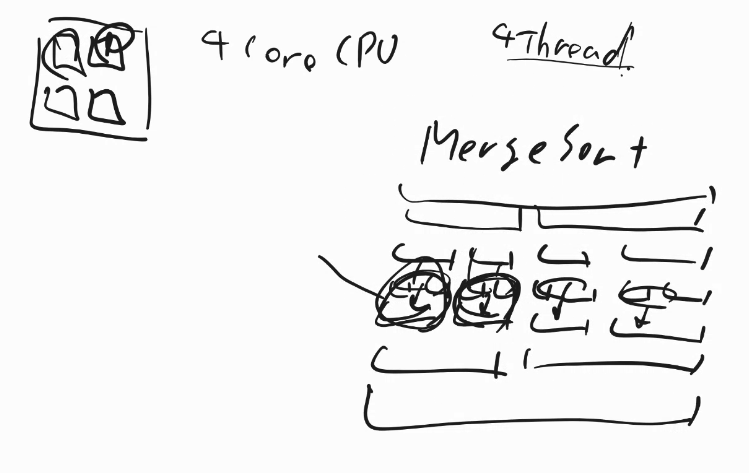 4 Core CPU
4Thread
MergeSort